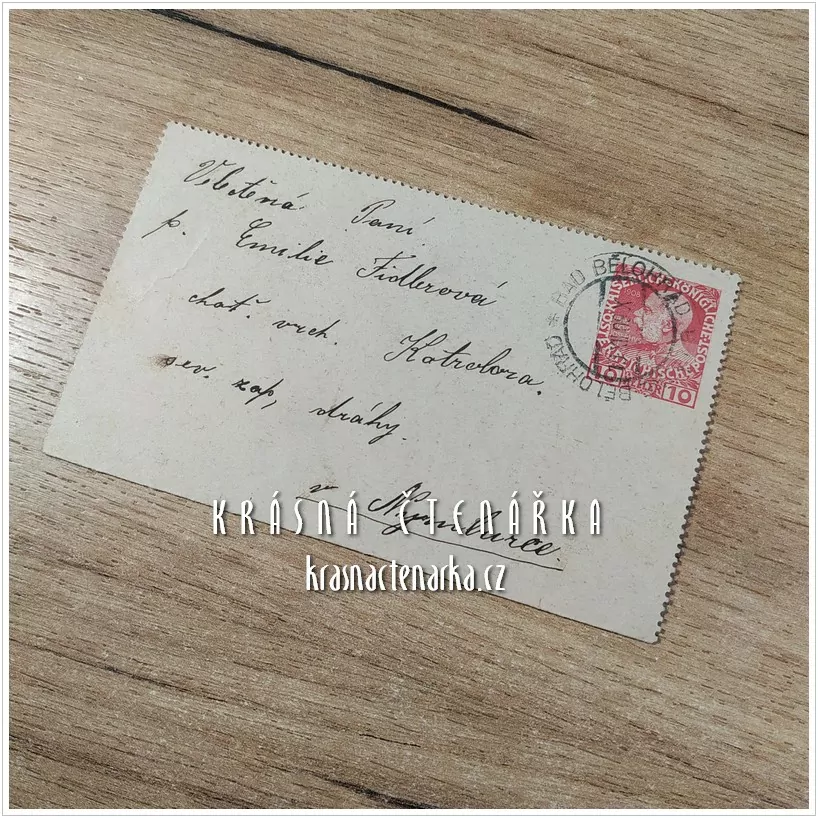 Velectěná Paní
p. Emilie Fidlerová
choť. vrch. Kotrolora.
sev. zap, dráhy.
v Nymburce.
BAD BĚLOHRAD *
BĚLOHRAD
KAISERKÖNIGLICHE
10
KRÁSNÁ ČTENÁŘKA
krasnactenarka.cz